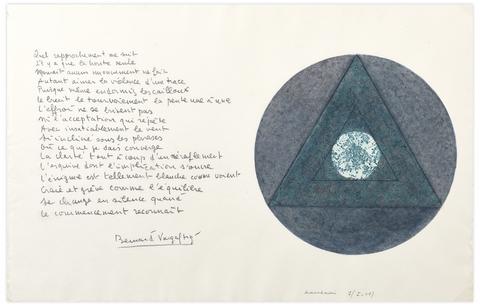 Quel rapprochement ne suit
S'il y a que la honte seule
aucun mouvement ne fait
Autant aimer la violence d'une trace
Puisque même endormis les cailloux
Le bruit le tournoiement la peut nue à
L'effroi ne se brisent pas
ni l'acceptation qui répète
Avec inlassablement le vent
Si incliné sous les phrases
Où ce que je sais converge
La clarté tout à coup d'un
L'esquive dont l'implication s'ouvre
L'énigme est tellement blanche comme
Craie et grève comme l'équilibre
Se change en silence quand
Le commencement reconnaît
Bernard Vargaftig